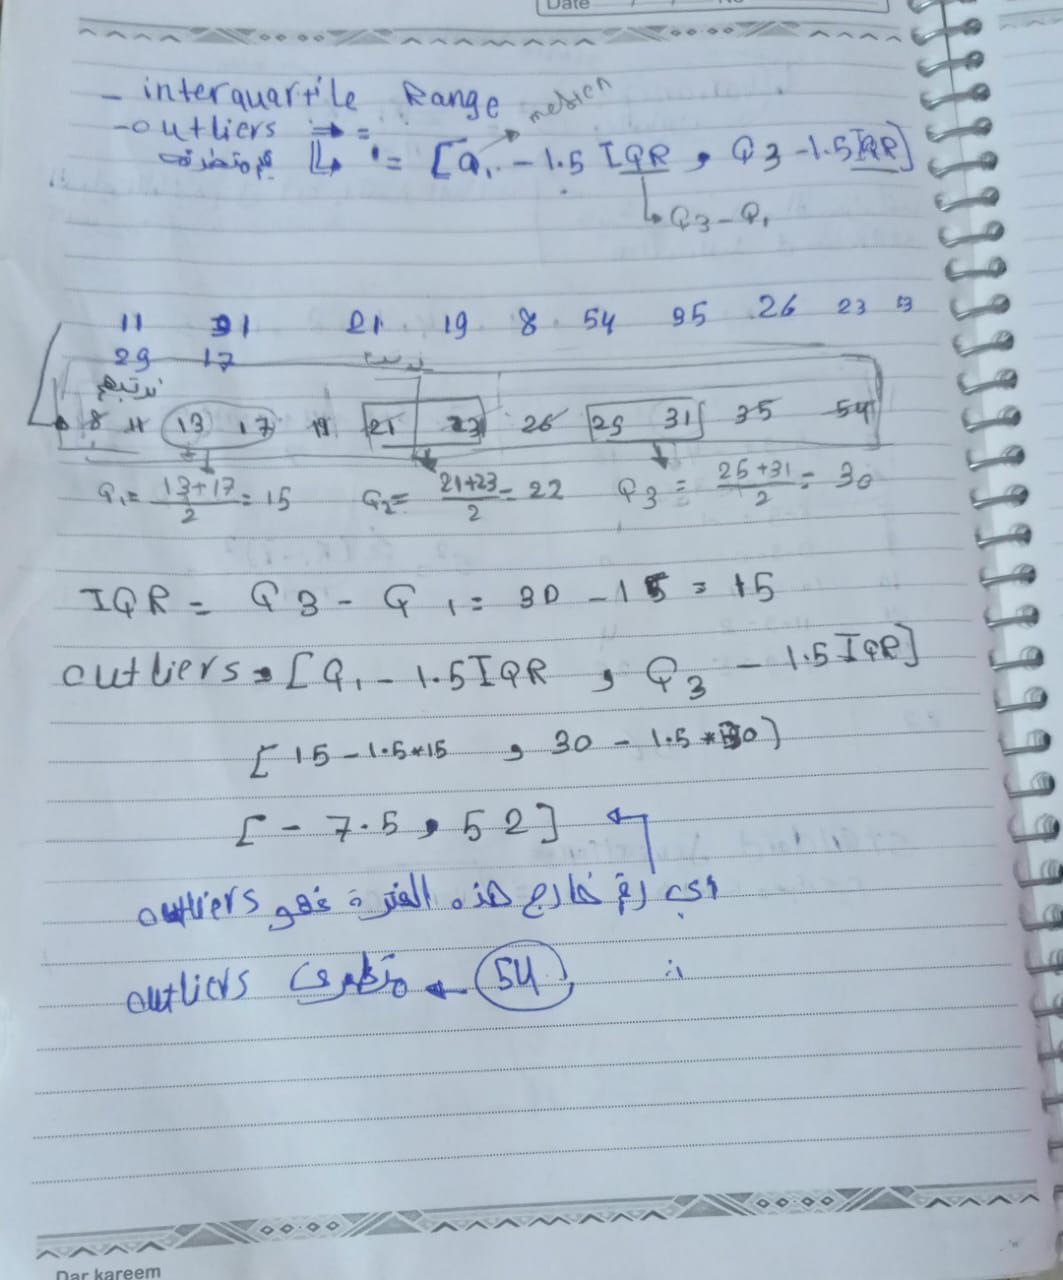 Date / / No
- interquartile Range
-outliers ⇒ = median
متطرفة = [Q1 - 1.5 IQR , Q3 -1.5 IQR]
Q3 - Q1
11 31 21 19 8 54 35 26 23 13
29 17
نرتبهم
8 11 13 17 19 21 23 26 29 31 35 54
Q1 = 13+17/2 = 15 Q2 = 21+23/2 = 22 Q3 = 26+31/2 = 30
IQR = Q3 - Q1 = 30 - 15 = 15
outliers = [Q1 - 1.5IQR , Q3 - 1.5IQR]
[15 - 1.5*15 , 30 - 1.5* 30]
[- 7.5 , 52]
اى رقم خارج هذه الفترة فهو outliers
∴ 54 ← متطرف outliers
Dar kareem